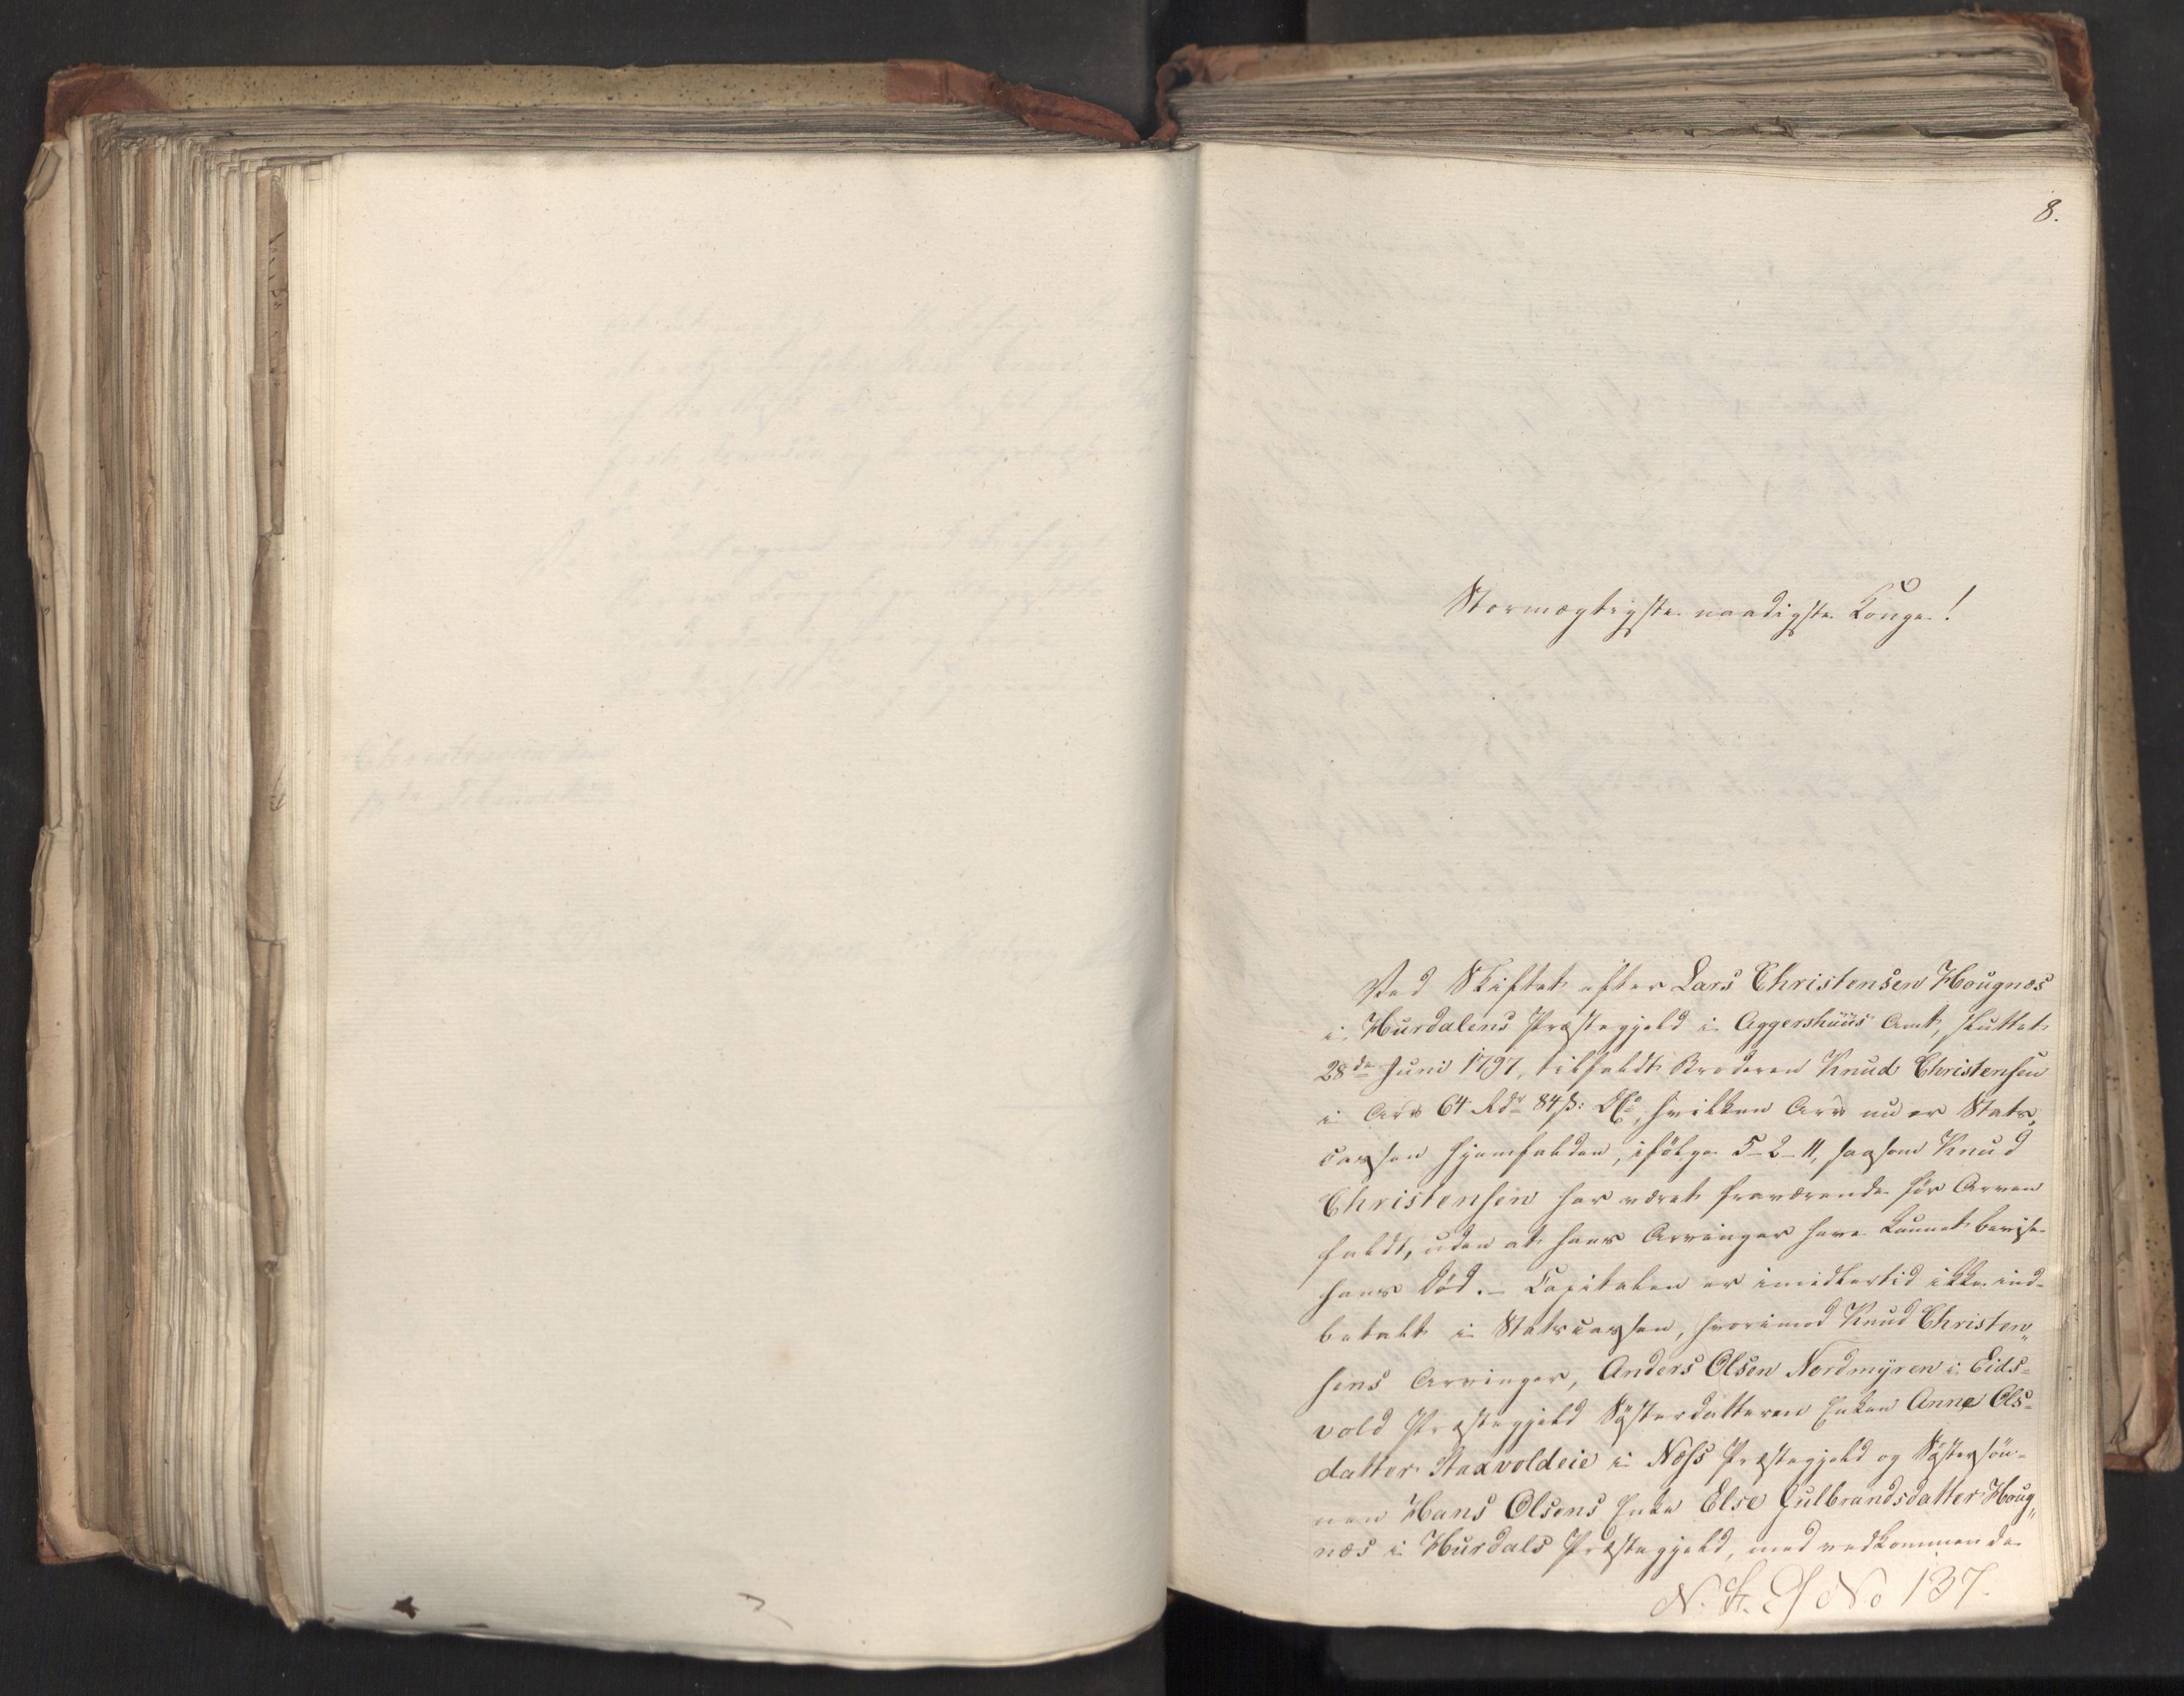 8.
Stormægtigste naadigste Konge!
Ved Skiftet efter Lars Christensen Hougnæs
i Hurdalens Præstegjeld i Aggershuus Amt, sluttet
28de Juni 1797, tilfaldt Broderen Knud Christensen
i Arv 64 Rdr 84 ß: , hvilken Arv nu er Stats„
cassen hjemfalden, ifölge 5-2-11, saasom Knud
Christensen har været fraværende för Arven
faldt, uden at hans Arvinger have kunnet bevise
hans Död. – Capitalen er imidlertid ikke ind-
betalt i Statscassen, hvorimod Knud Christen„
sens Arvinger, Anders Olsen Nordmyren i Eids=
vold Præstegjeld Sösterdatteren Enken Anne Ols=
datter Staxvoldeie i Næss Præstegjeld og Söstersön-
nen Hans Olsens Enke Else Gulbrandsdatter Houg„
næs i Hurdals Præstegjeld, med vedkommende
No 137.